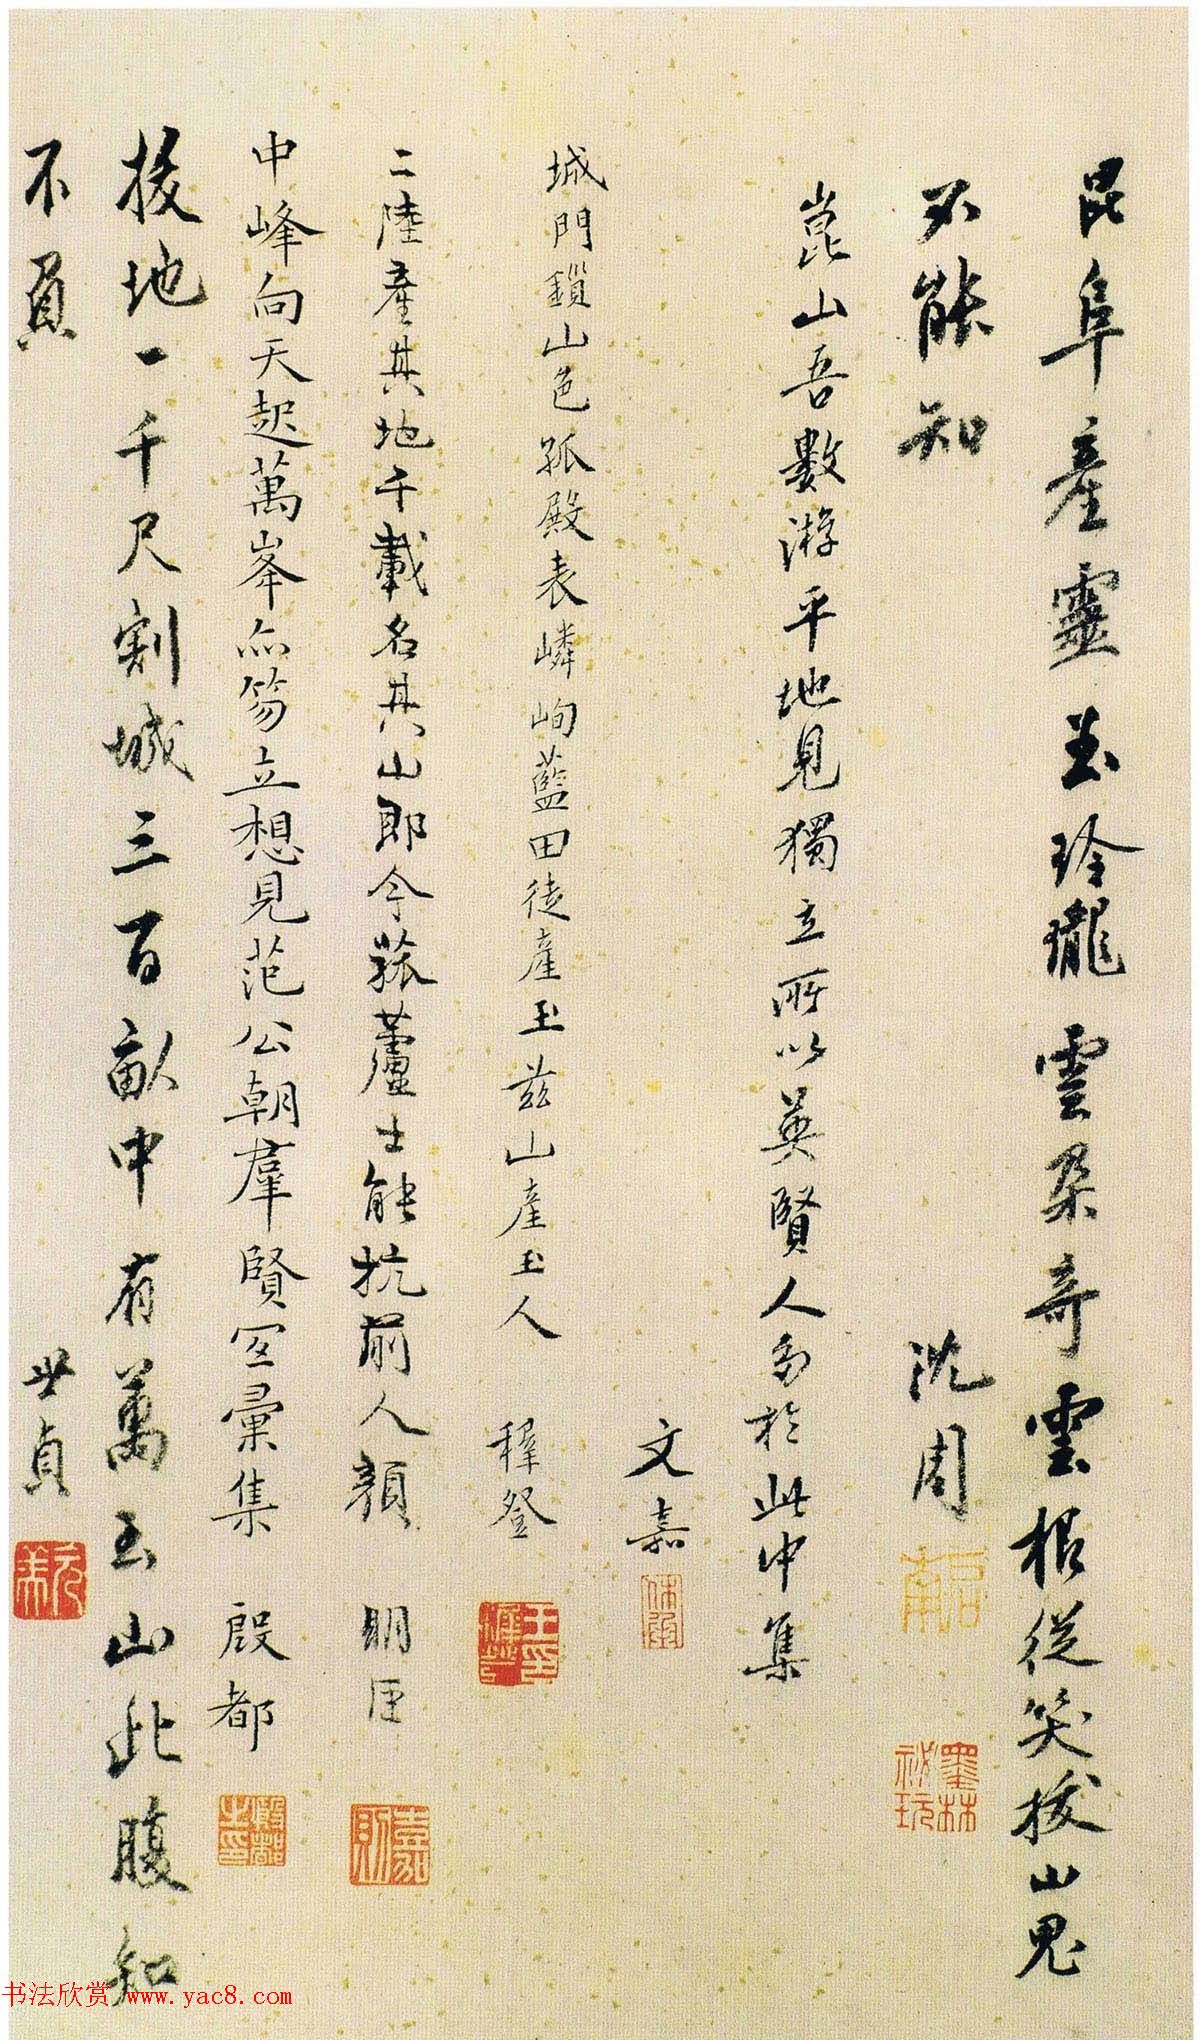 昆阜產靈玉玲瓏雲朶奇雲根從笑拔山鬼
不能知
沈周
崑山吾數游平地見獨立所以英賢人多於此中集
文嘉
城門鎖山色孤殿表嶙峋藍田徒產玉茲山產玉人
穉登
二陸產其地千載名其山即今菰蘆士能抗前人顏
明臣
中峰向天起萬峯亦笏立想見范公朝羣賢宜彙集
殷都
拔地一千尺割城三百畝中有萬玉山此腹知
不負
世貞
啟南
墨林秘玩
休承
王穉登印
嘉則
殷都之印
元美
书法欣赏 www.yac8.com